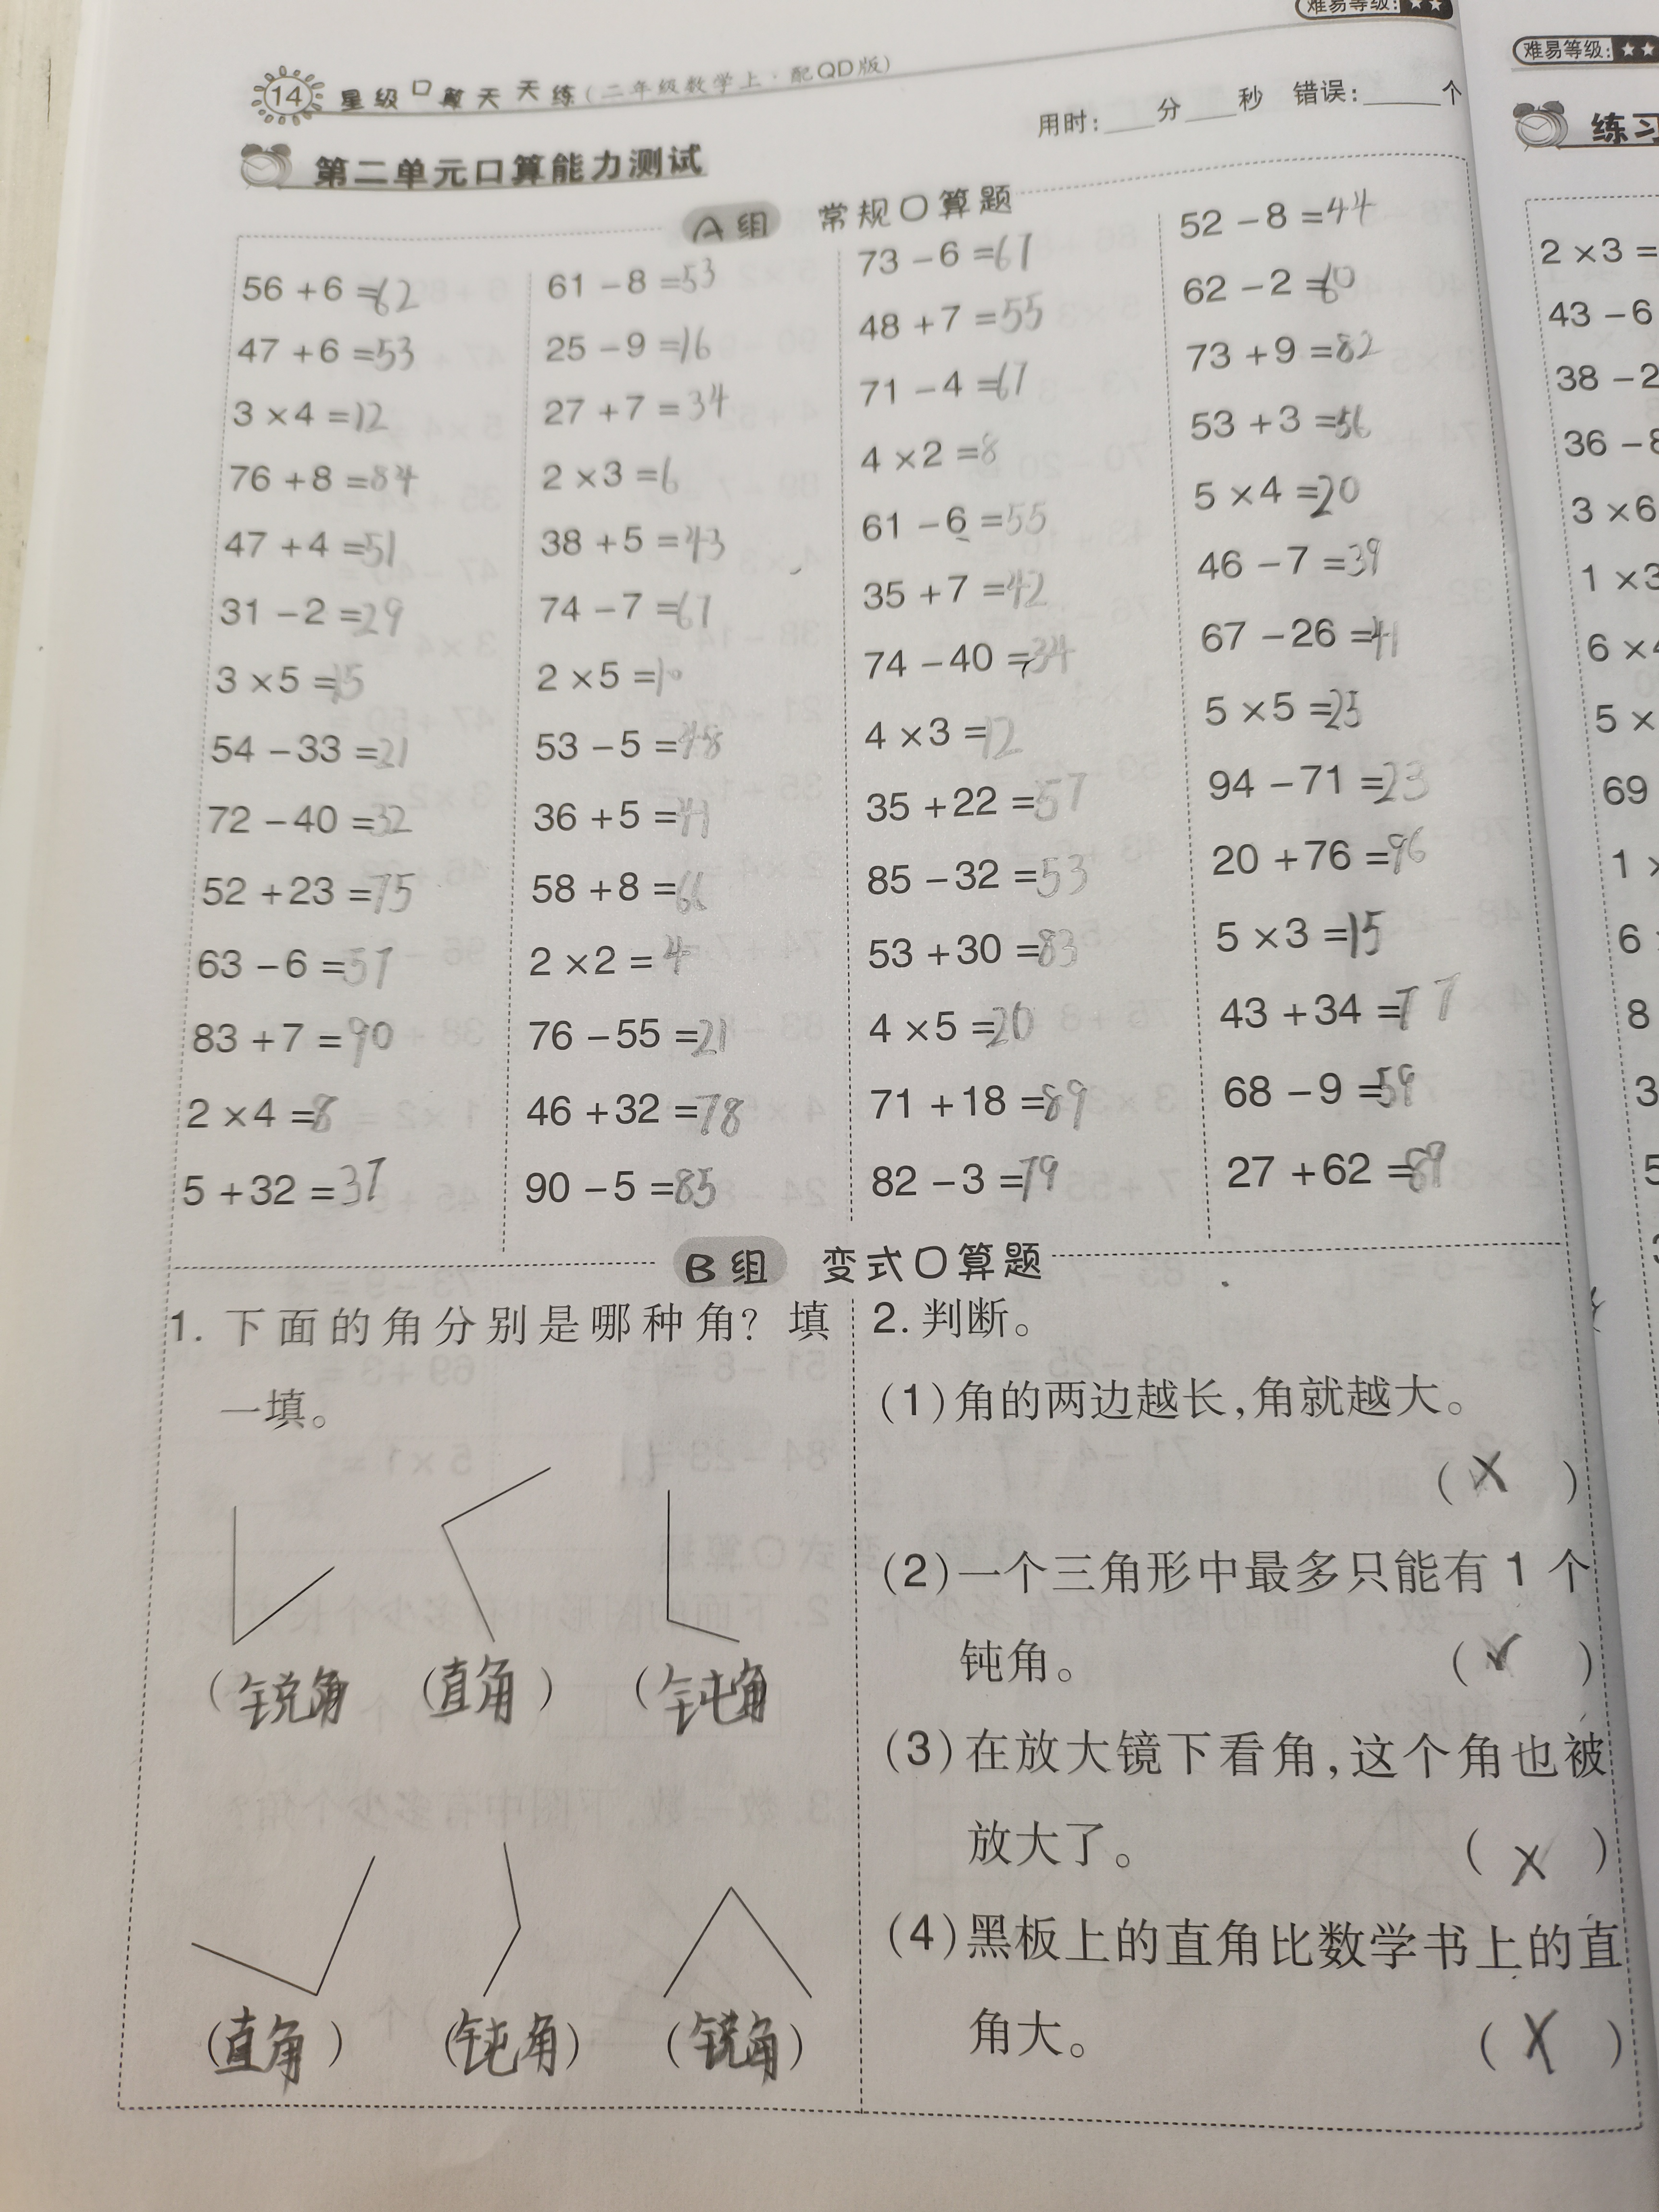 难易等级:★★
14 星级口算天天练(二年级数学上·配QD版)
用时:____分____秒 错误:______个
第二单元口算能力测试
A组 常规口算题
56+6=62
47+6=53
3×4=12
76+8=84
47+4=51
31-2=29
3×5=15
54-33=21
72-40=32
52+23=75
63-6=57
83+7=90
2×4=8
5+32=37
61-8=53
25-9=16
27+7=34
2×3=6
38+5=43
74-7=67
2×5=10
53-5=48
36+5=41
58+8=66
2×2=4
76-55=21
46+32=78
90-5=85
73-6=67
48+7=55
71-4=67
4×2=8
61-6=55
35+7=42
74-40=34
4×3=12
35+22=57
85-32=53
53+30=83
4×5=20
71+18=89
82-3=79
52-8=44
62-2=60
73+9=82
53+3=56
5×4=20
46-7=39
67-26=41
5×5=25
94-71=23
20+76=96
5×3=15
43+34=77
68-9=59
27+62=89
B组 变式口算题
1. 下面的角分别是哪种角?填
一填。
(锐角 (直角) (钝角
(直角) (钝角) (锐角)
2. 判断。
(1)角的两边越长,角就越大。
(×)
(2)一个三角形中最多只能有1个
钝角。 (✓)
(3)在放大镜下看角,这个角也被
放大了。 (×)
(4)黑板上的直角比数学书上的直
角大。 (×)
难易等级:★★
练习
2×3=
43-6
38-2
36-8
3×6
1×3
6×4
5×
69
1×
6
8
3
5